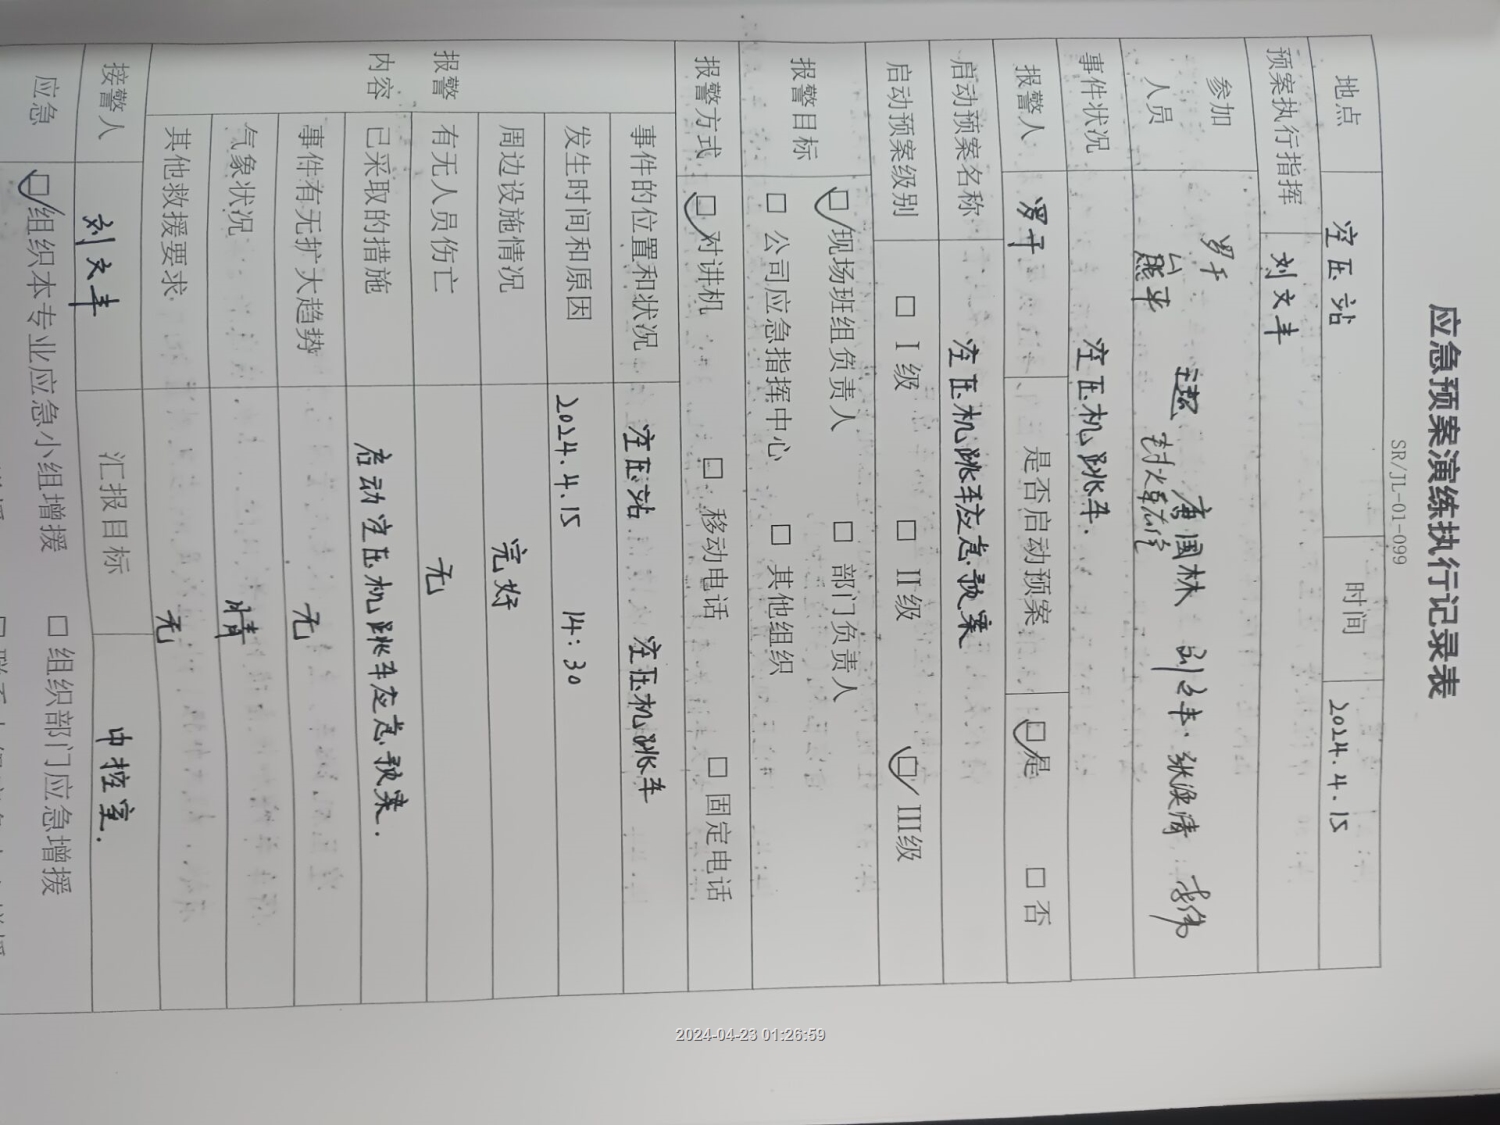 应急预案演练执行记录表
SR/JL-01-099
地点 空压站 时间 2024.4.15
预案执行指挥 刘文丰
参加人员 罗开 熊平 唐国林 刘文丰. 张涣清 李伟
事件状况 空压机跳车.
报警人 罗开 是否启动预案 ☑是 □否
启动预案名称 空压机跳车应急预案
启动预案级别 □ I级 □ II级 ☑ III级
报警目标 ☑现场班组负责人 □ 部门负责人
□ 公司应急指挥中心 □ 其他组织
报警方式 ☑对讲机 □ 移动电话 □ 固定电话
报警内容
事件的位置和状况 空压站 空压机跳车
发生时间和原因 2024.4.15 14:30
周边设施情况 完好
有无人员伤亡 无
已采取的措施 启动空压机跳车应急预案.
事件有无扩大趋势 无
气象状况 晴
其他救援要求 无
接警人 刘文丰 汇报目标 中控室.
应急 ☑组织本专业应急小组增援 □ 组织部门应急增援
2024-04-23 01:26:59